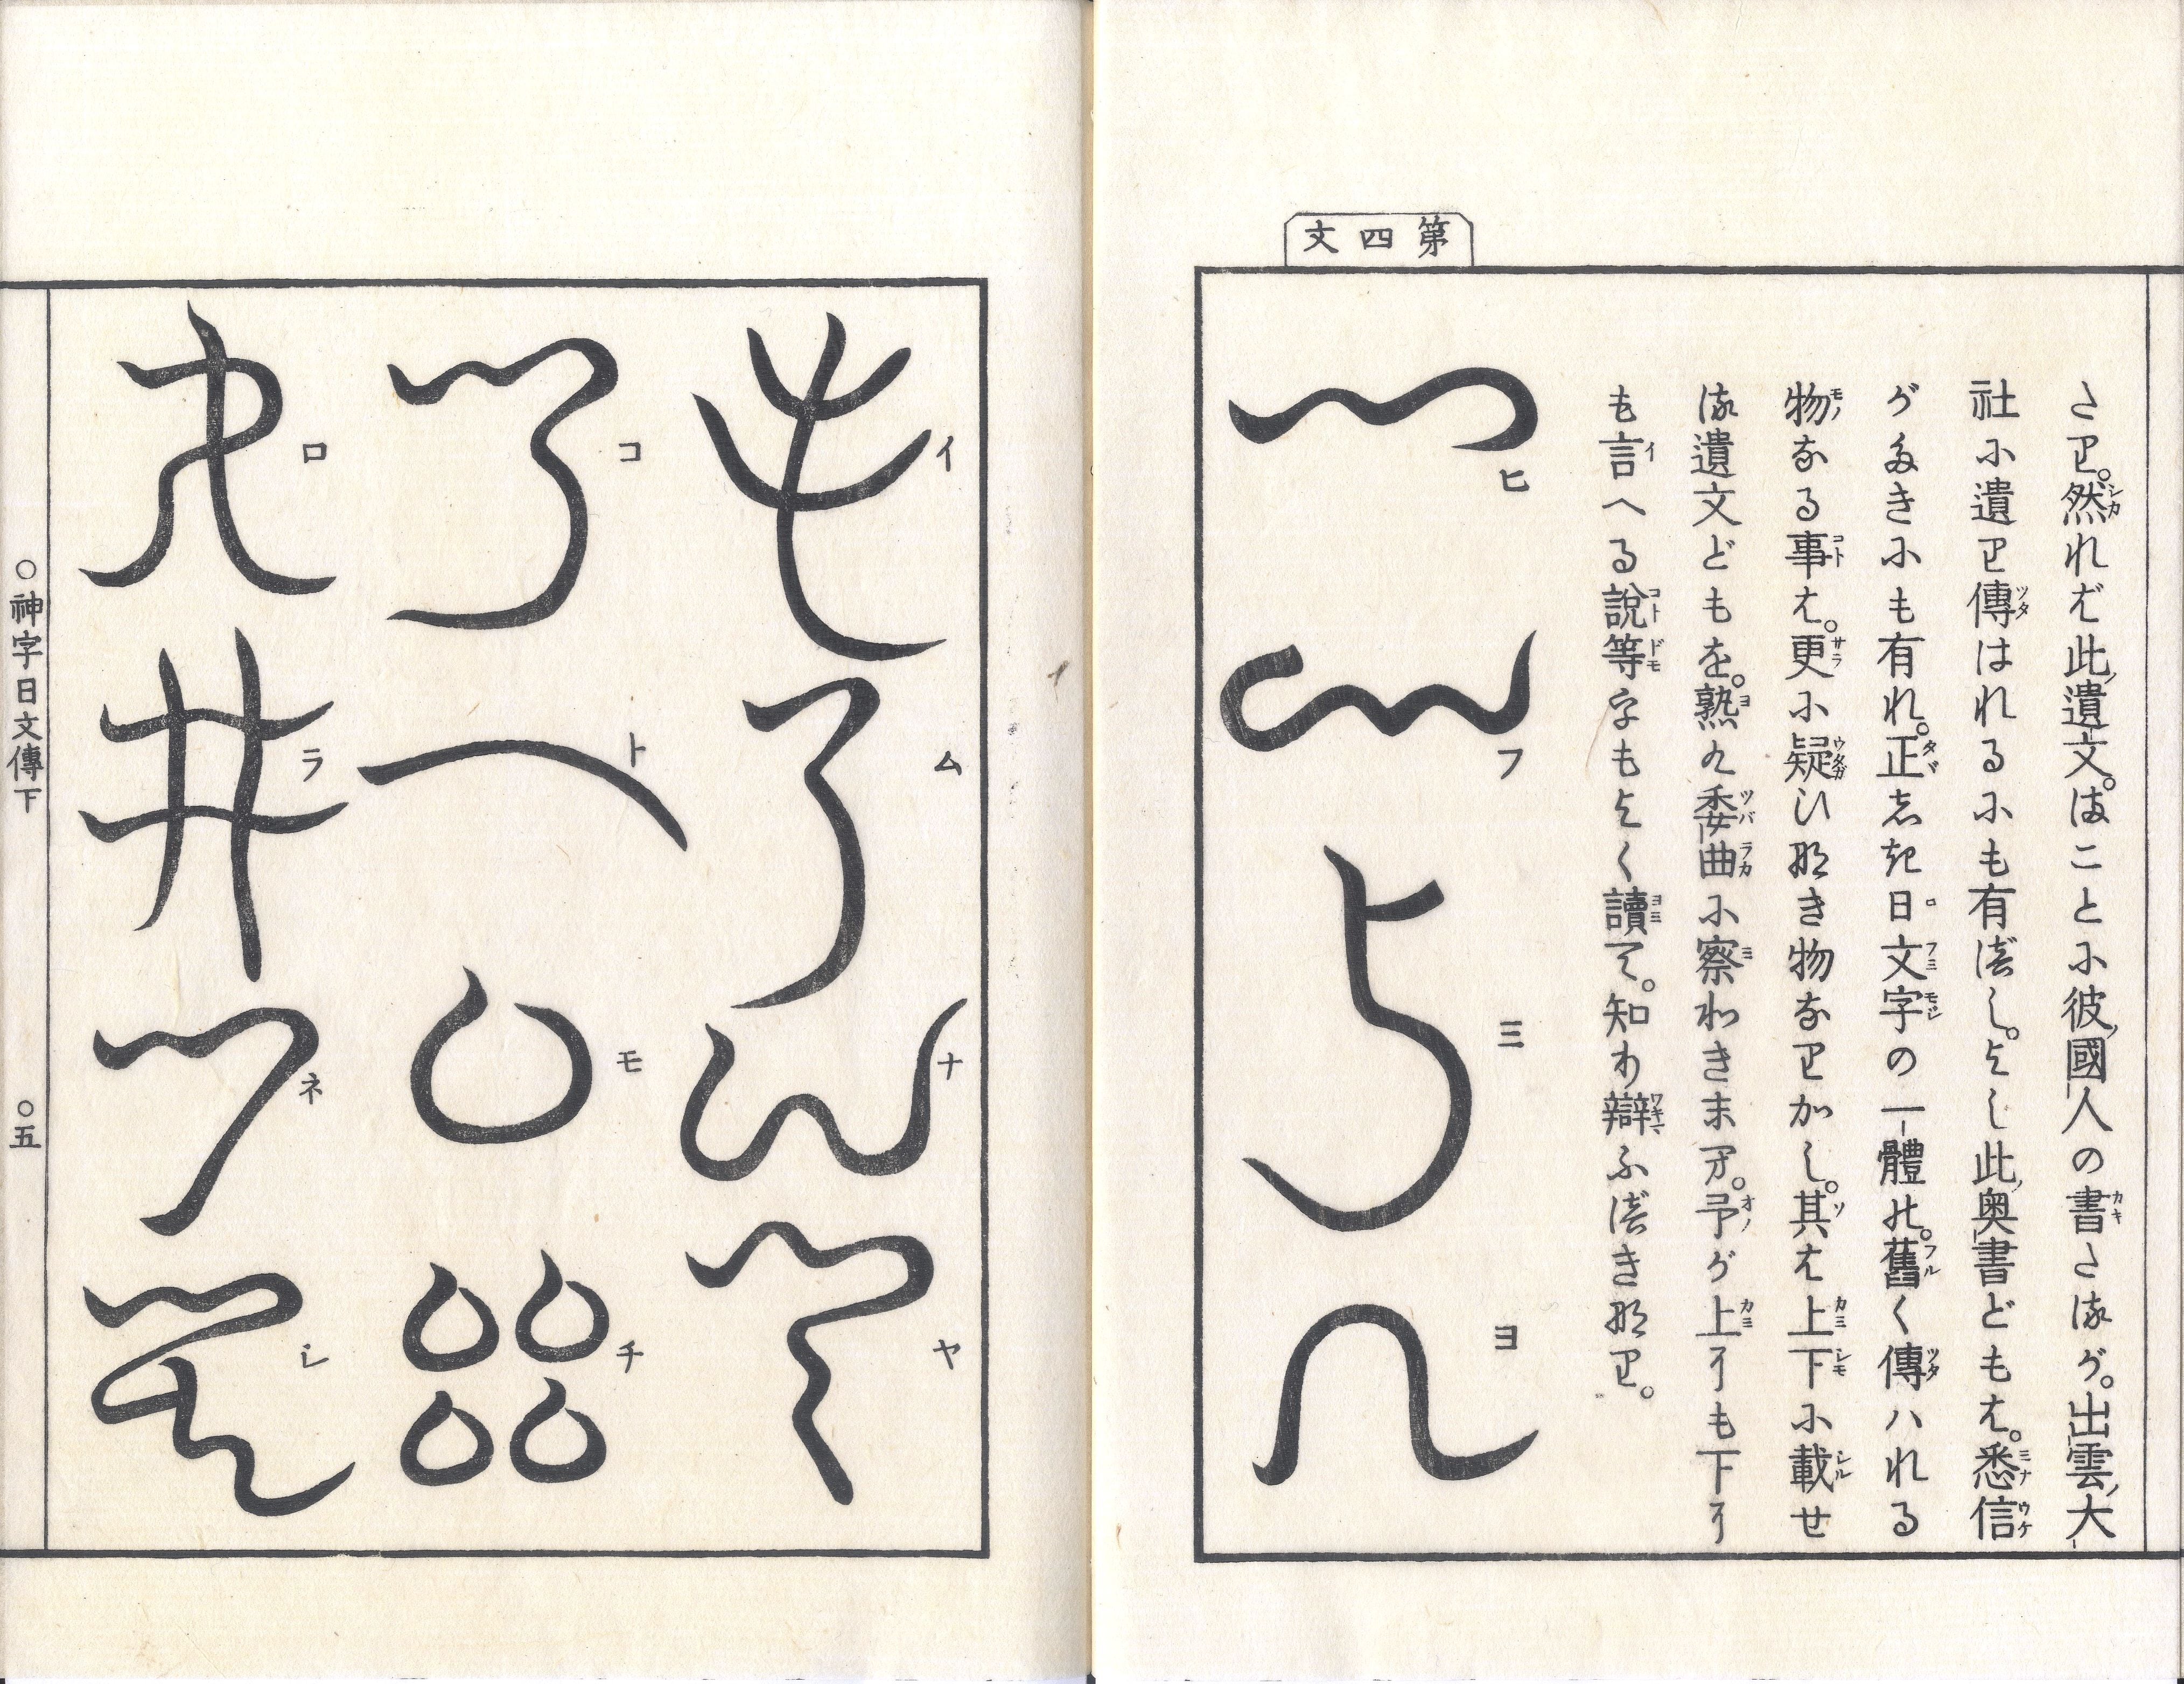 第四文
たり。然れば此ノ遺文。まことに彼ノ國人の書たるが。出雲ノ大
社に遺り傳はれるにも有べし。よし此ノ奥書どもは。悉信
がたきにも有れ。正しき日文字の一體の。舊く傳ハれる
物なる事は。更に疑ひなき物なりかし。其は上下に載せ
る遺文どもを。熟く委曲に察わきまへ。予が上にも下に
も言へる説等をもよく讀て。知り辯ふべきなり。
ヒ
フ
ミ
ヨ
イ
ム
ナ
ヤ
コ
ト
モ
チ
ロ
ラ
ネ
シ
○神字日文傳下
○五